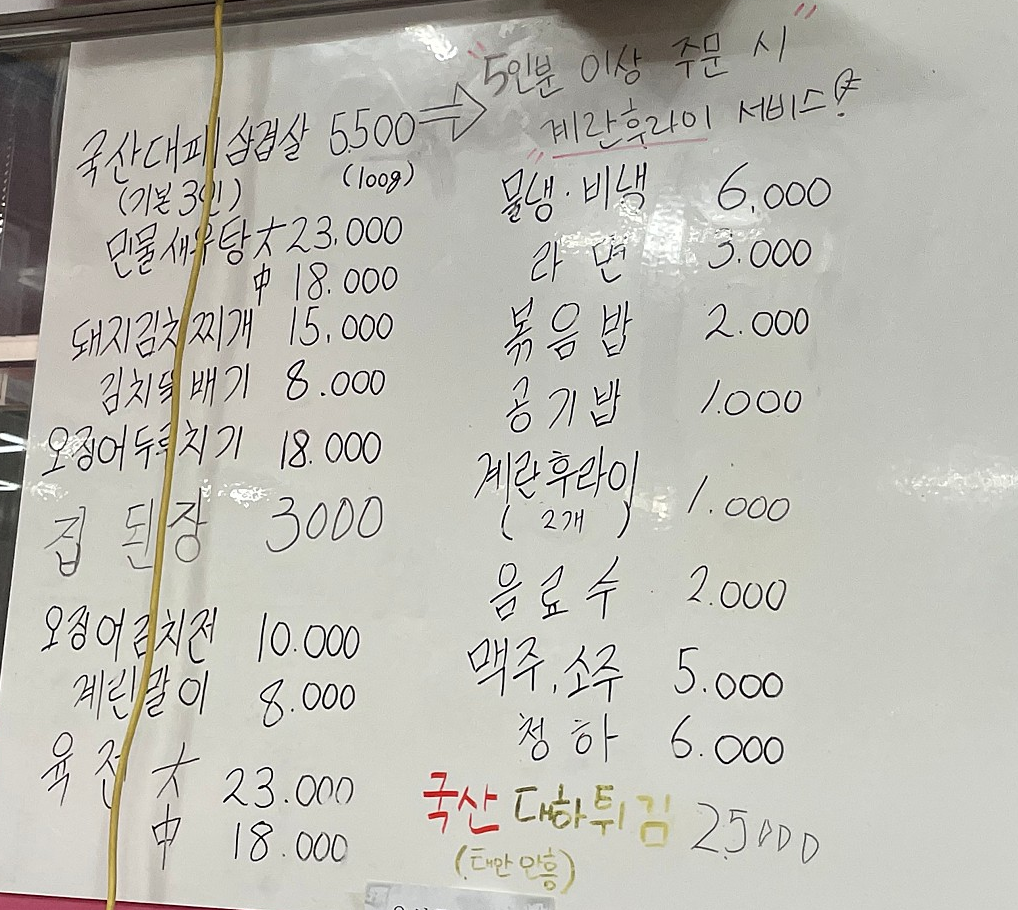 국산대패삼겹살 5500
(기본3인) (100g)
민물새우탕 大 23.000
中 18.000
돼지김치찌개 15.000
김치뚝배기 8.000
오징어두루치기 18.000
집 된장 3000
오징어김치전 10.000
계란말이 8.000
육전 大 23.000
中 18.000
"5인분 이상 주문 시"
"계란후라이 서비스!
물냉·비냉 6.000
라면 3.000
볶음밥 2.000
공기밥 1.000
계란후라이 1.000
(2개)
음료수 2.000
맥주, 소주 5.000
청하 6.000
국산 대하튀김 25000
(태안 안흥)